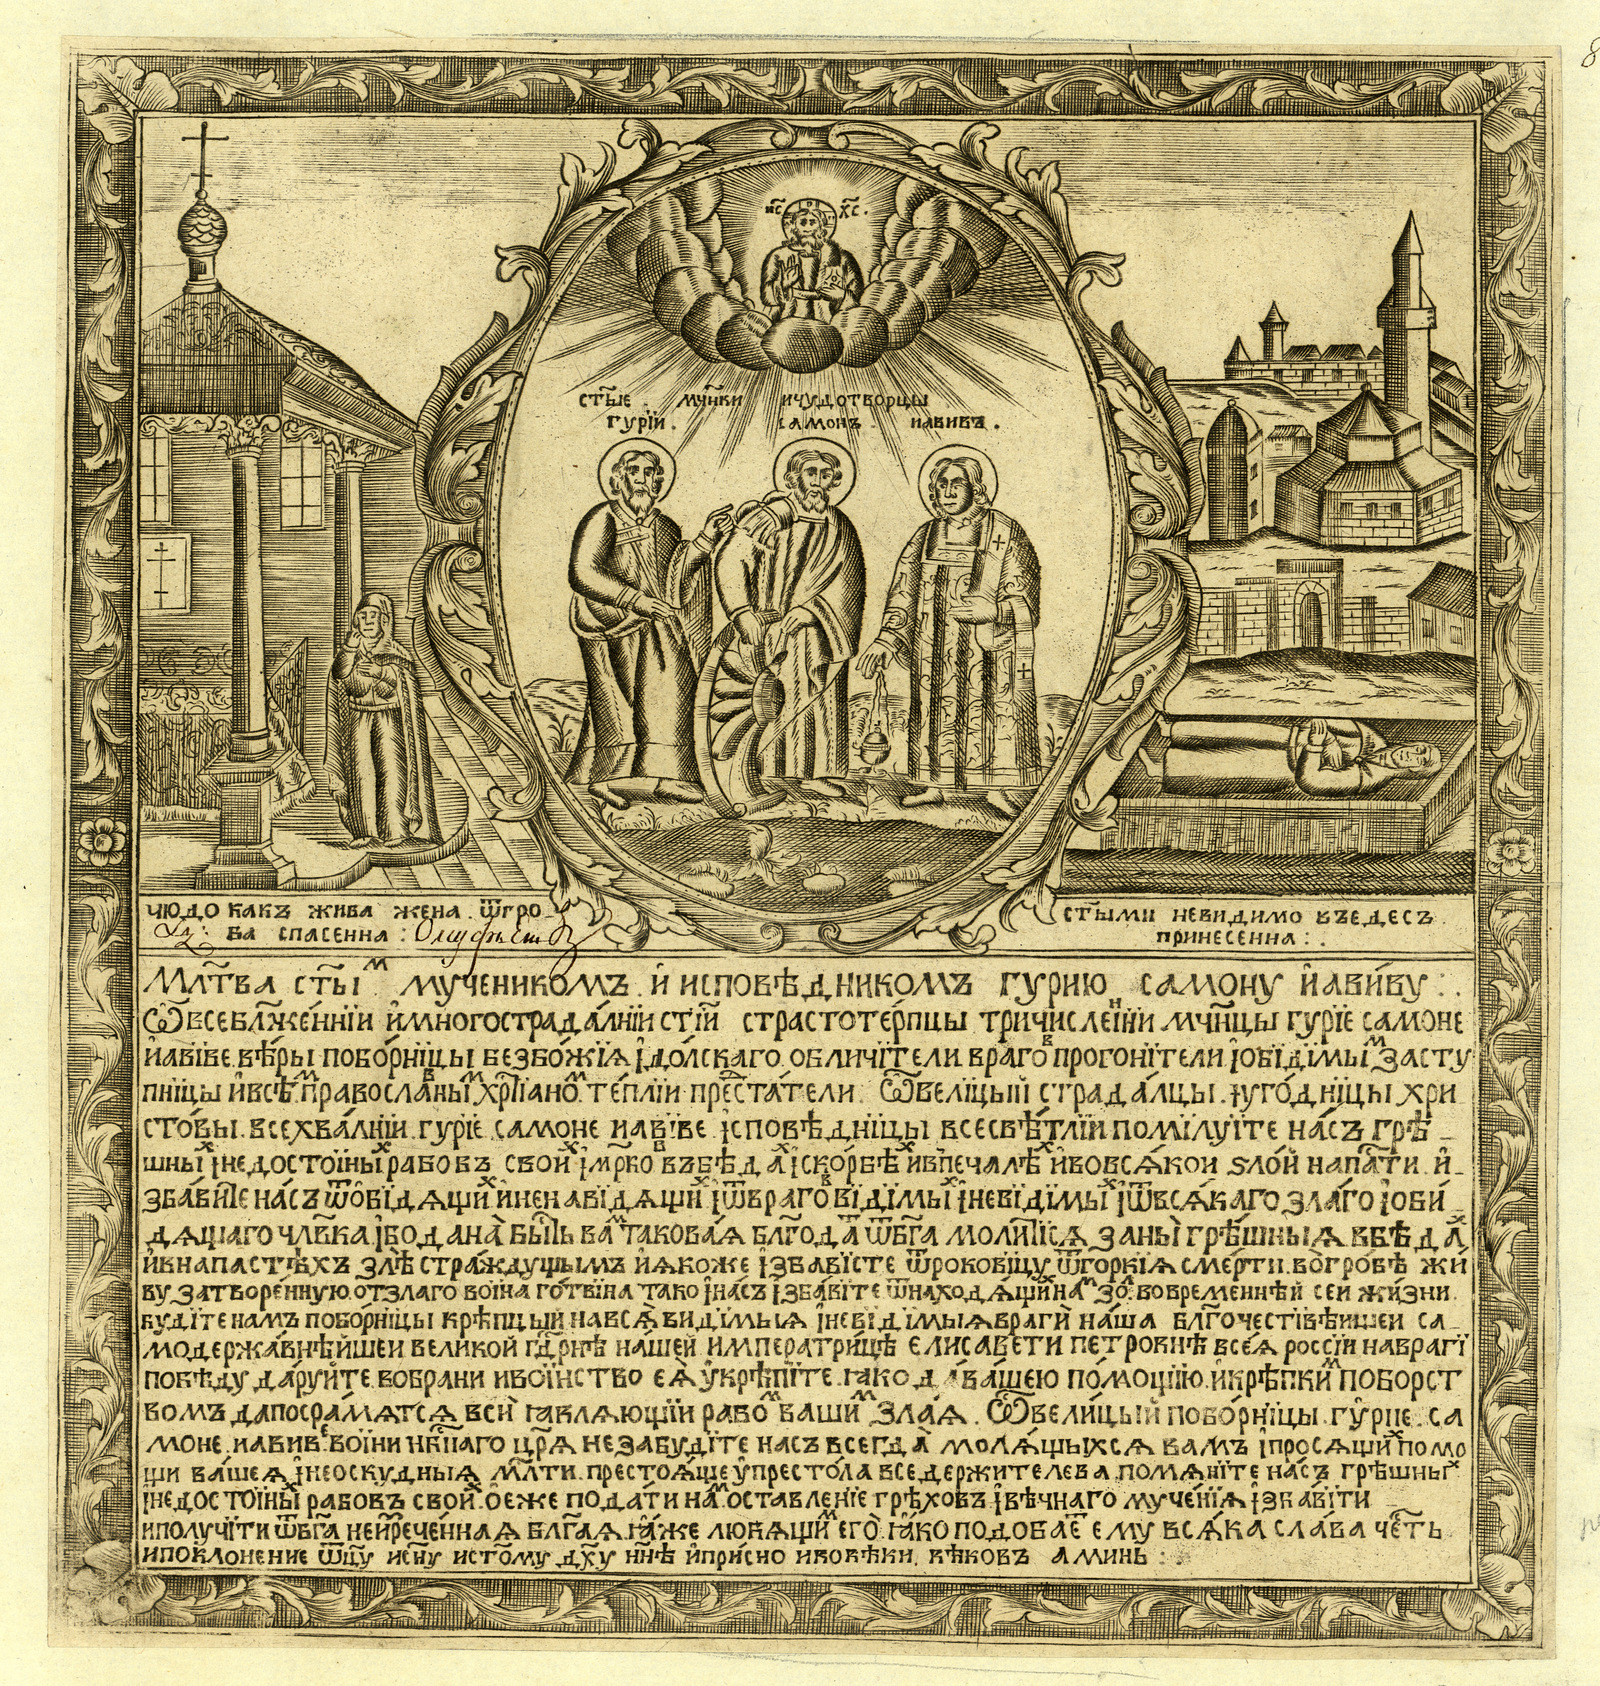 ИС ХС.
СТ҃ЫЕ МУ҃НКИ ИЧУДОТВОРЦЫ
ГУРІЙ. САМОНЪ. ИАВИВЪ.
ЧЮДО КАКЪ ЖИВА ЖЕНА ѾГРО
БА СПАСЕННА:
СТ҃ЫМИ НЕВИДИМО ВЪЕДЕСЪ
ПРИНЕСЕННА:.
МЛТ҃ВА СТ҃Ыᲅ МУЧЕНИКОМЪ И҆ ИСПОВѢДНИКОМЪ ГУРИЮ САМОНУ И҆АВИ́ВУ:.
ѾВСЕБЛЖ҃Е́ННІИ И҆МНОГОСТРАДА́ЛНІИ СТІ҃И СТРАСТОТЕ́РПЦЫ ТРИЧИСЛЕ́ННІИ МЧ҃НЦЫ ГУРІЕ САМОНЕ
И҆АВІ́ВЕ. ВѢ́РЫ ПОБО́РНІЦЫ БЕЗБО́ЖІѦ ІДО́ЛСКАГО. ОБЛИЧІ́ТЕЛИ ВРАГОВ ПРОГОНІ́ТЕЛИ. ІОБІ́ДІМЫМ ЗАСТУ
ПНІЦЫ ИВСѢМ ПРАВОСЛА́ВНЫМ ХР҃ТІАНОМ ТЕ́ПЛІИ ПРЕДСТА́ТЕЛИ. ѾВЕЛІ́ЦЫЙ СТРАДА́ЛЦЫ. ІУГО́ДНІЦЫ ХРИ
СТО́ВЫ. ВСЕХВА́ЛНІИ. ГУРІЕ. САМОНЕ ИАВІ́ВЕ. ІСПОВѢ́ДНІЦЫ ВСЕСВѢ́ТЛІИ ПОМІ́ЛУІТЕ НА́СЪ ГРѢ_
ШНЫХ ІНЕДОСТО́ІНЫХ РАБОВЪ СВОИХ ІМР҃КОВ ВЪБѢДАХ ІСКО́РБѢХ ИВПЕЧАЛѢХ И҆ВОВСѦ́КОИ ЅЛО́Й НАПА́СТИ. И_
ЗБА́ВІТЕ НА́СЪ ѾОБІ́ДѦЩИХ И҆НЕНАВІ́ДѦЩИХ ІѾВРАГОВ ВІ́ДІМЫХ ІНЕВІ́ДІМЫХ ІѾВСѦ́КАГО ЗЛА́ГО ІОБИ́
ДѦЩАГО ЧЛ҃ВКА. ІБО ДАНА̀ БЫ́СТЬ ВАМ ТАКОВА́Ѧ БЛГ҃ОДАТ ѾБГ҃А МОЛИ́ТІСѦ ЗАНЫ̀ ГРѢ́ШНЫѦ ВБѢДАХ
И҆ВНАПАСТѢХЪ ЗЛѢ СТРА́ЖДУЩЫМЪ И҆Ѧ́КОЖЕ ІЗБА́ВІСТЕ ѾРОКОВІ́ЦУ ѾГО́РКІѦ СМЕ́РТИ. ВОГРО́БѢ ЖИ
ВУ ЗАТВОРЕ́ННУЮ. ОТЗЛАГО ВОІ́НА ГО́ТѲІНА ТАКО ІНА́СЪ ІЗБА́ВІТЕ ѾНАХОДѦ́ЩИХ НАМ ЗОЛ ВОВРЕМЕННѢЙ СЕИ ЖИ́ЗНИ.
БУДІ́ТЕ НАМЪ ПОБО́РНІЦЫ КРѢПЦЫЙ НАВСѦ̀ ВИ́ДІМЫѦ ІНЕВІ́ДІМЫѦ ВРАГЍ НА́ША БЛГ҃ОЧЕСТІ́ВѢИШЕЙ СА_
МОДЕРЖА́ВНѢЙШЕИ ВЕЛИ́КОЙ ГД҃РНѢ НА́ШЕЙ ИМПЕРАТРИ́ЦѢ ЕЛИСА́ВЕТИ ПЕТРОВНѢ ВСЕѦ́ РОССІ́И НАВРАГІ̀
ПОБѢ́ДУ ДА́РУЙТЕ. ВОБРАНИ ИВО́ІНСТВО ЕѦ̀ УКРѢПІ́ТЕ. ꙖКО ДА ВА́ШЕЮ ПО́МОЩІЮ. И҆КРѢПКИМ ПОБОРСТ
ВОМЪ ДАПОСРА́МѦТСѦ ВСИ ꙖВЛѦЮЩІИ РАБОМ ВАШИМ ЗЛА́Ѧ. ѾВЕЛИ́ЦЫЙ ПОБО́РНІЦЫ. ГУ́РИЕ. СА
МОНЕ. ИАВИВЕ. ВО́ІНИ НБ҃НАГО ЦР҃Ѧ НЕЗАБУДІ́ТЕ НАСЪ ВСЕГДА̀ МОЛѦ́ЩЫХСѦ ВАМЪ ІПРОСѦ́ЩИХ ПОМО
ЩИ ВА́ШЕѦ ІНЕОСКУ́ДНЫѦ МЛ҃ТИ. ПРЕСТОѦ́ЩЕ У҆ПРЕСТО́ЛА ВСЕДЕРЖИТЕЛЕВА. ПОМѦНІ́ТЕ НА́СЪ ГРѢ́ШНЫХ
ІНЕДОСТО́ІНЫХ РАБОВЪ СВОИХ. О҆ЕЖЕ ПОДА́ТИ НАМ ОСТАВЛЕ́НІЕ ГРѢХО́ВЪ ІВѢ́ЧНАГО МУЧЕ́НІѦ ІЗБА́ВІТИ
ИПОЛУЧІ́ТИ ѾБГ҃А НЕИЗРЕЧЕ́ННАѦ БЛГ҃АѦ. Ꙗ҆ЖЕ ЛЮБѦЩИМ ЕГО̀. Ꙗ҆КО ПОДОБАЕТ ЕМУ ВСѦ́КА СЛА́ВА ЧЕ҃ТЬ
ИПОКЛОНЕНИЕ ѾЦУ҃ ИСН҃У ИСТ҃ОМУ ДХ҃У НН҃Ѣ И҆ПРИ́СНО ИВОВѢКИ. ВѢКОВЪ АМИНЬ: